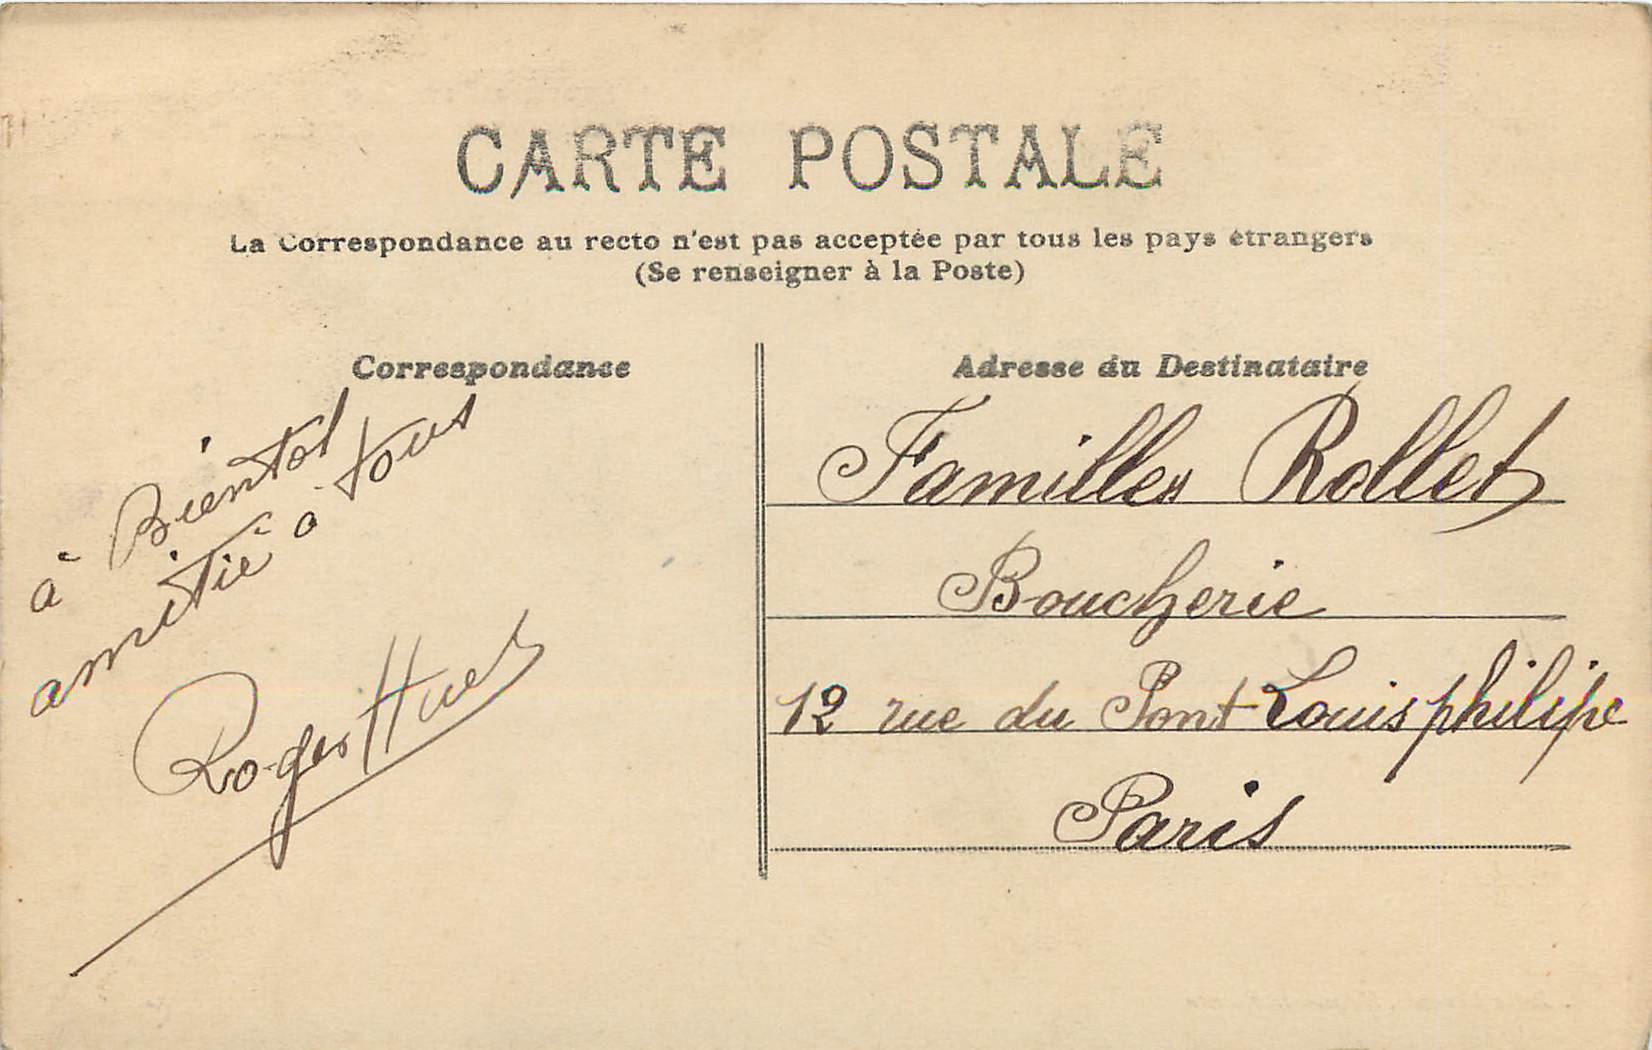 CARTE POSTALE
La Correspondance au recto n'est pas acceptée par tous les pays étrangers
(Se renseigner à la Poste)
Correspondance
à Bientot
amitié a tous
Roger Huet
Adresse du Destinataire
Familles Rollet
Boucherie
12 rue du Pont Louis philipe
Paris